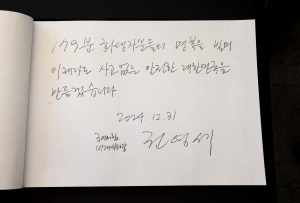 179분 희생자분들의 명복을 빌며
이래라도 사고없는 안전한 대한민국을
만들겠습니다
2024 12.31
국민의힘
비상대책위원장
권영세